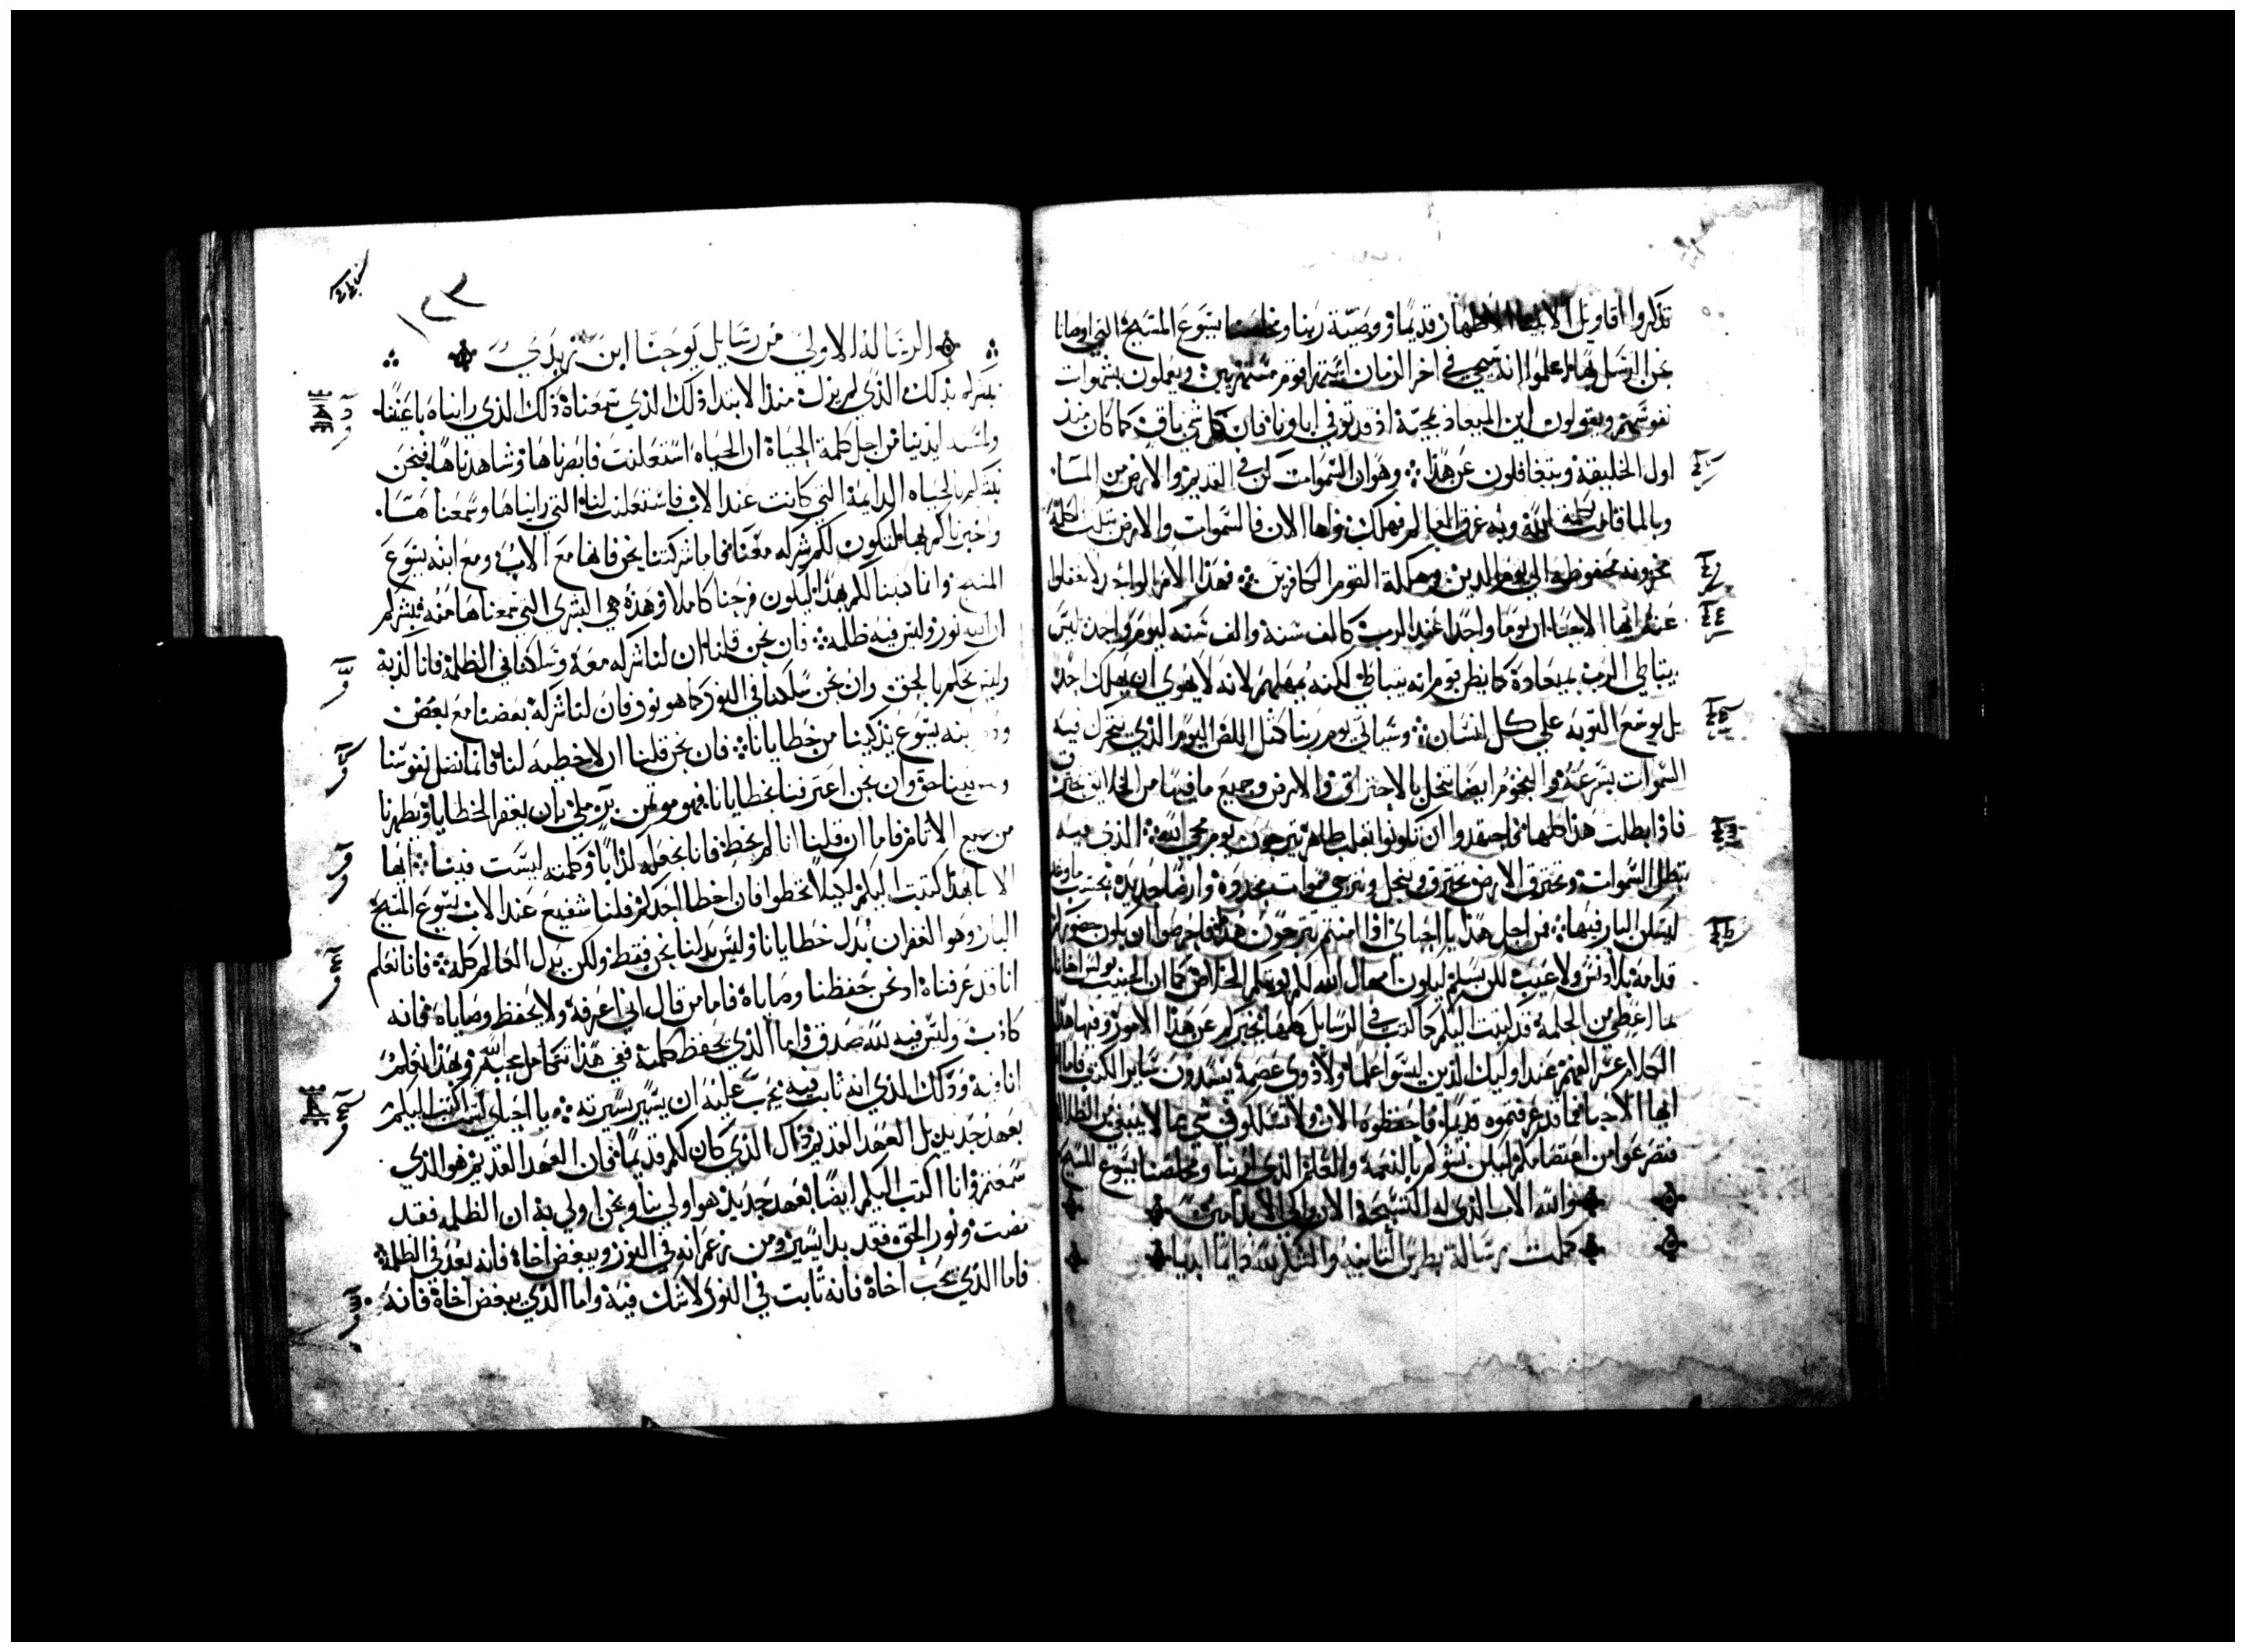 تذكروا اقاويل الانبيا الاطهار قديما ووصية ربنا ومخلصنا يسوع المسيح التي اوصانا
نحن الرسل بها اعلموا انه سيجي في اخر الزمان قوم مستهزيين ويعملون بشهوات
نفوسهم ويقولون اين الميعاد بمجيه اذ قد توفي اباونا فان كل شي باق كما كان منذ
اول الخليقة ويتغافلون عن هذا وهو ان السموات كن في القديم والارض من الما
وبالما قامت بكلمة الله وبه غرق العالم فهلك فاما الان فالسموات والارض بتلك الكلمة
مخزونه محفوظه الي يوم الدين وهلكة القوم الكافرين فهذا الامر الواحد لا تغفلوا
عنه ايها الاحبا ان يوما واحدا عند الرب كالف سنة والف سنه كيوم واحد ليس
يتباطي الرب بميعاده كما يظن قوم انه يتباطي لكنه يمهلهم لانه لا يهوي ان يهلك احد
بل يوسع التوبه علي كل انسان وسياتي يوم ربنا مثل اللص اليوم الذي تنحل فيه
السموات بسرعة والنجوم ايضا تنحل بالاحتراق والارض وجميع ما فيها من الخلايق تحترق
فاذا بطلت هذا كلها فاجتهدوا ان تكونوا بقلب طاهر ترجون يوم مجي الله الذي فيه
تبطل السموات وتحترق والارض تحترق وتنحل ونترجي سموات مجدده وارضا جديده بحسب ماوعد
ليسكن البار فيها من اجل هذا يا احباي اذا انتم ترجون هذا فاحرصوا ان يكون حضوركم
قدامه بلا دنس ولا عيب لكن بسلم ليكون امهال الله لكم يومكم الخلاص كما ان الحبيب بولس اخانا
بما اعطي من الحكمه قد كتب اليكم كما كتب في الرسايل كلها يخبركم عن هذا الامور وفيها هذا
الكلام عسر الفهم عند اوليك الذين ليسوا علما ولا ذوي عصمة يفسدون ساير الكتب فاما
ايها الاحبا فما قد عرفتموه قديما فاحفظوه الان ولا تسلكوا في شي مما لا ينبغي من الضلال
فتفرعوا من اعتصامكم لكن نشوكم بالنعمة والعلم الذي لربنا ومخلصنا يسوع المسيح
والله الاب الذي له التسبحة الان والي الابد امين
كملت رسالة بطرس الثانيه والشكر لله دايما ابديا
١٢٣
الرسالة الاولي من رسايل يوحنا ابن زبدي
نبشركم بذلك الذي لم يزل منذ الابتدا ذلك الذي سمعناه ذلك الذي رايناه باعيننا
ولمسته ايدينا من اجل كلمة الحياة ان الحياه استعلنت فابصرناها وشاهدناها فنحن
نبشركم بالحياه الدايمة التي كانت عند الاب فاستعلنت لنا التي رايناها وسمعناها
واخبرناكم بها لتكون لكم شركه معنا فاما شركتنا نحن فانها مع الاب ومع ابنه يسوع
المسيح وانما كتبنا لكم بهذا ليكون فرحنا كاملا وهذه هي البشري التي سمعناها منه نبشركم
ان الله نور وليس فيه ظلمة فان نحن قلنا ان لنا شركه معه وسلكنا في الظلمة فانا كذبة
وليه نحكم بالحق وان نحن سلكنا في النور كما هو نور فان لنا شركة بعضنا مع بعض
ودم ابنه يسوع يزكينا من خطايانا فان نحن قلنا ان لا خطيه لنا فانما نضل نفوسنا
وليس فينا حق وان نحن اعترفنا بخطايانا فهو مومن بر ملي بان يغفر الخطايا ويطهرنا
من جميع الاثام فاما ان قلنا انا لم نخط فانا نجعله كذابا وكلمته ليست فينا ايها
الابنا بهذا كتبت اليكم لكيلا تخطوا فان اخطا احدكم فلنا شفيع عند الاب يسوع المسيح
البار وهو الغفران بدل خطايانا وليس بدلنا نحن فقط ولكن بدل العالم كله فانا نعلم
انا قد عرفناه اذ نحن حفظنا وصاياه فاما من قال اني اعرفه ولا يحفظ وصاياه فانه
كاذب وليس فيه لله صدق واما الذي يحفظ كلمته ففي هذا تتكامل محبة الله وبهذا نعلم
انا فيه وذلك الذي انه ثابت فيه يجب عليه ان يسير بسيرته يا احباي لست اكتب اليكم
بعهد جديد بل العهد القديم ذاك الذي كان لكم قديما فان العهد القديم هو الذي
سمعتم وانا اكتب اليكم ايضا بعهد جديد هو اولي بنا ونحن اولي به ان الظلمه فقد
مضت ونور الحق فقد بدا يسير ومن زعم انه في النور ويبغض اخاه فانه بعد في الظلمة
فاما الذي يحب اخاه فانه ثابت في النور لا شك فيه واما الذي يبغض اخاه فانه